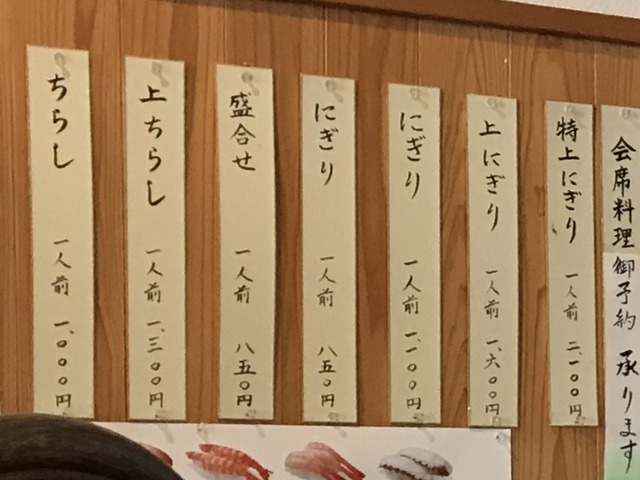 会席料理御予約 承ります
特上にぎり 一人前 二、一〇〇円
上にぎり 一人前 一、六〇〇円
にぎり 一人前 一、一〇〇円
にぎり 一人前 八五〇円
盛合せ 一人前 八五〇円
上ちらし 一人前 一、三〇〇円
ちらし 一人前 一、〇〇〇円